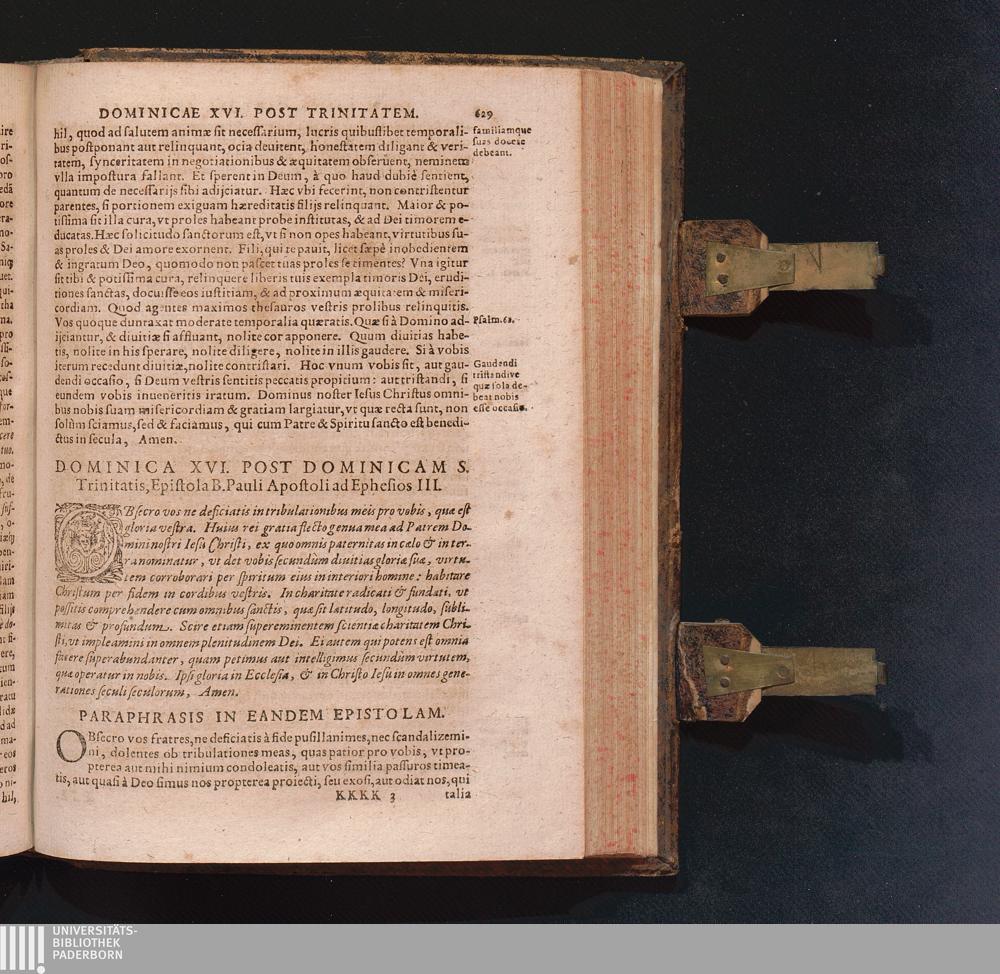 DOMINICAE XVI. POST TRINITATEM. 629
hil, quod ad ſalutem animæ ſit neceſſarium, lucris quibuſlibet temporali-
bus poſtponant aut relinquant, ocia deuitent, honeſtatem diligant & veri-
tatem, ſynceritatem in negotiationibus & æquitatem obſeruent, neminem
vlla impoſtura fallant. Et ſperent in Deum, à quo haud dubiè ſentient,
quantum de neceſſarijs ſibi adijciatur. Hæc vbi fecerint, non contriſtentur
parentes, ſi portionem exiguam hæreditatis filijs relinquant. Maior & po-
tiſſima ſit illa cura, vt proles habeant probe inſtitutas, & ad Dei timorem e-
ducatas. Hæc ſolicitudo ſanctorum eſt, vt ſi non opes habeant, virtutibus ſu-
as proles & Dei amore exornent. Fili, qui te pauit, licet ſæpè inobedientem
& ingratum Deo, quomodo non paſcet tuas proles ſe timentes? Vna igitur
ſit tibi & potiſſima cura, relinquere liberis tuis exempla timoris Dei, erudi-
tiones ſanctas, docuiſſe eos iuſtitiam, & ad proximum æquitatem & miſeri-
cordiam. Quod agentes maximos theſauros veſtris prolibus relinquitis.
Vos quoque duntaxat moderate temporalia quæratis. Quæ ſi à Domino ad-
ijciantur, & diuitiæ ſi affluant, nolite cor apponere. Quum diuitias habe-
tis, nolite in his ſperare, nolite diligere, nolite in illis gaudere. Si à vobis
iterum recedunt diuitiæ, nolite contriſtari. Hoc vnum vobis ſit, aut gau-
dendi occaſio, ſi Deum veſtris ſentitis peccatis propitium: aut triſtandi, ſi
eundem vobis inueneritis iratum. Dominus noſter Ieſus Chriſtus omni-
bus nobis ſuam miſericordiam & gratiam largiatur, vt quæ recta ſunt, non
ſolùm ſciamus, ſed & faciamus, qui cum Patre & Spiritu ſancto eſt benedi-
ctus in ſecula, Amen.
familiamque
ſuas docere
debeant.
Pſalm. 61.
Gaudendi
triſtandive
quæ ſola de-
beat nobis
eſſe occaſio.
DOMINICA XVI. POST DOMINICAM S.
Trinitatis, Epiſtola B. Pauli Apoſtoli ad Epheſios III.
OBſecro vos ne deficiatis in tribulationibus meis pro vobis, quæ eſt
gloria veſtra. Huius rei gratia flecto genua mea ad Patrem Do-
mini noſtri Ieſu Chriſti, ex quo omnis paternitas in cælo & in ter-
ra nominatur, vt det vobis ſecundùm diuitias gloriæ ſuæ, virtu-
tem corroborari per ſpiritum eius in interiori homine: habitare
Chriſtum per fidem in cordibus veſtris. In charitate radicati & fundati, vt
poſſitis comprehendere cum omnibus ſanctis, quæ ſit latitudo, longitudo, ſubli-
mitas & profundum. Scire etiam ſupereminentem ſcientiæ charitatem Chri-
ſti, vt impleamini in omnem plenitudinem Dei. Ei autem qui potens eſt omnia
facere ſuperabundanter, quam petimus aut intelligimus ſecundùm virtutem,
quæ operatur in nobis. Ipſi gloria in Eccleſia, & in Chriſto Ieſu in omnes gene-
rationes ſeculi ſeculorum, Amen.
PARAPHRASIS IN EANDEM EPISTOLAM.
OBſecro vos fratres, ne deficiatis à fide puſillanimes, nec ſcandalizemi-
ni, dolentes ob tribulationes meas, quas patior pro vobis, vt pro-
pterea aut mihi nimium condoleatis, aut vos ſimilia paſſuros timea-
tis, aut quaſi à Deo ſimus nos propterea proiecti, ſeu exoſi, aut odiat nos, qui
KKKK 3 talia
UNIVERSITÄTS-
BIBLIOTHEK
PADERBORN